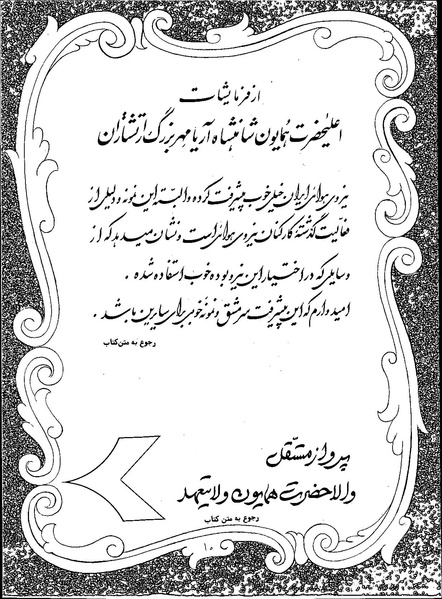 از فرمایشات
اعلیحضرت همایون شاهنشاه آریامهر بزرگ ارتشتاران
نیروی هوائی ایران خیلی خوب پیشرفت کرده و البته این نمونه و دلیلی از
فعالیت گذشته کارکنان نیروی هوائی است و نشان میدهد که از
وسایلی که در اختیار این نیرو بوده خوب استفاده شده .
امیدوارم که این پیشرفت سرمشق و نمونه خوبی برای سایرین باشد .
رجوع به متن کتاب
پرواز مستقل
والاحضرت همایون ولایتعهد
رجوع به متن کتاب
۱۰